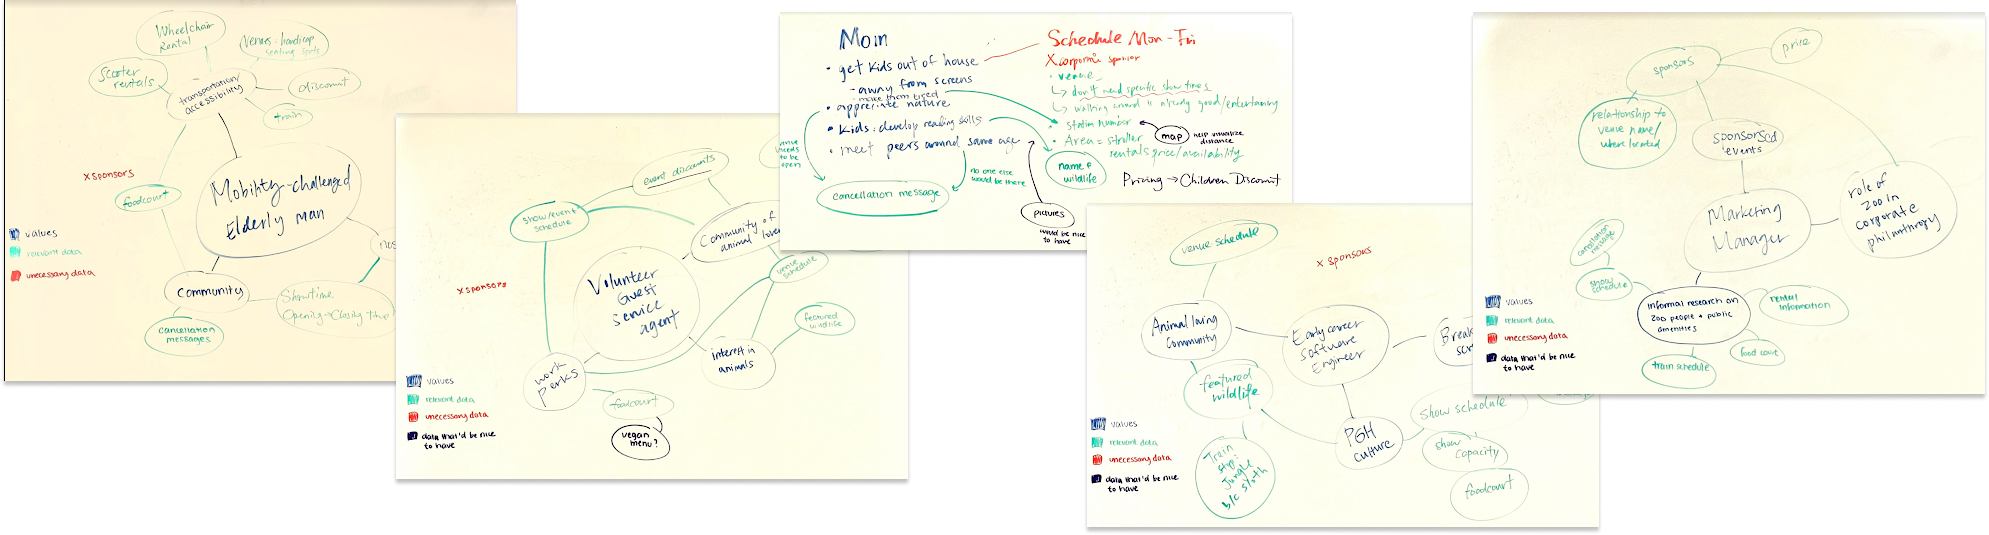 Wheelchair
Rental
Venues: handicap
seating spots
Scooter
rentals
transportation
accessibility
discount
train
X sponsors
foodcourt
Mobility-challenged
Elderly man
values
relevant data
unecessary data
Community
Showtime
Opening → Closing
cancellation
messages
event discounts
show/event
schedule
Community of
animal lovers
X sponsors
Volunteer
Guest
Service
agent
venue
schedule
featured
wildlife
interest in
animals
work
perks
foodcourt
vegan
menu?
values
relevant data
unecessary data
data that'd be nice
to have
Mom
• get kids out of house
- away from screens
- make them tired
• appreciate nature
• Kids: develop reading skills
• meet peers around same age
venue
needs
to be
open
cancellation message
no one else
would be there
Schedule Mon-Fri
X corporate sponsor
• venue
↳ don't need specific show times
↳ walking around is already good/entertaining
• station number
map
help visualize
distance
• Area = stroller
rentals price/availability
name of
wildlife
Pricing → Children Discount
pictures
would be nice
to have
venue schedule
X sponsors
Animal loving
Community
Early career
Software
Engineer
featured
wildlife
Train
stop:
Jungle
b/c sloth
PGH
culture
show schedule
show
capacity
foodcourt
values
relevant data
unecessary data
data that'd be nice
to have
sponsors
price
relationship to
venue name/
where located
sponsored
events
role of
zoo in
corporate
philanthropy
Marketing
Manager
cancellation
message
show
schedule
informal research on
zoo people + public
amenities
rental
information
food court
train schedule
values
relevant data
unecessary data
data that'd be nice
to have